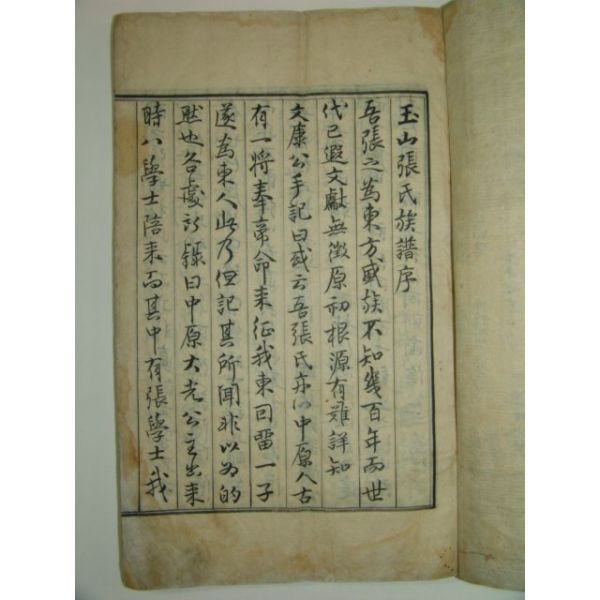 玉山張氏族譜序
吾張之爲東方盛族不知幾百年而世
代已遐文獻無徵原初根源有難詳知
文康公手記曰或云吾張氏亦以中原人古
有一將奉帝命来征我東回留一子
遂爲東人此乃但記其所聞非以為的
然也各處所録曰中原大老公主出来
時八學士陪来而其中有張學士我